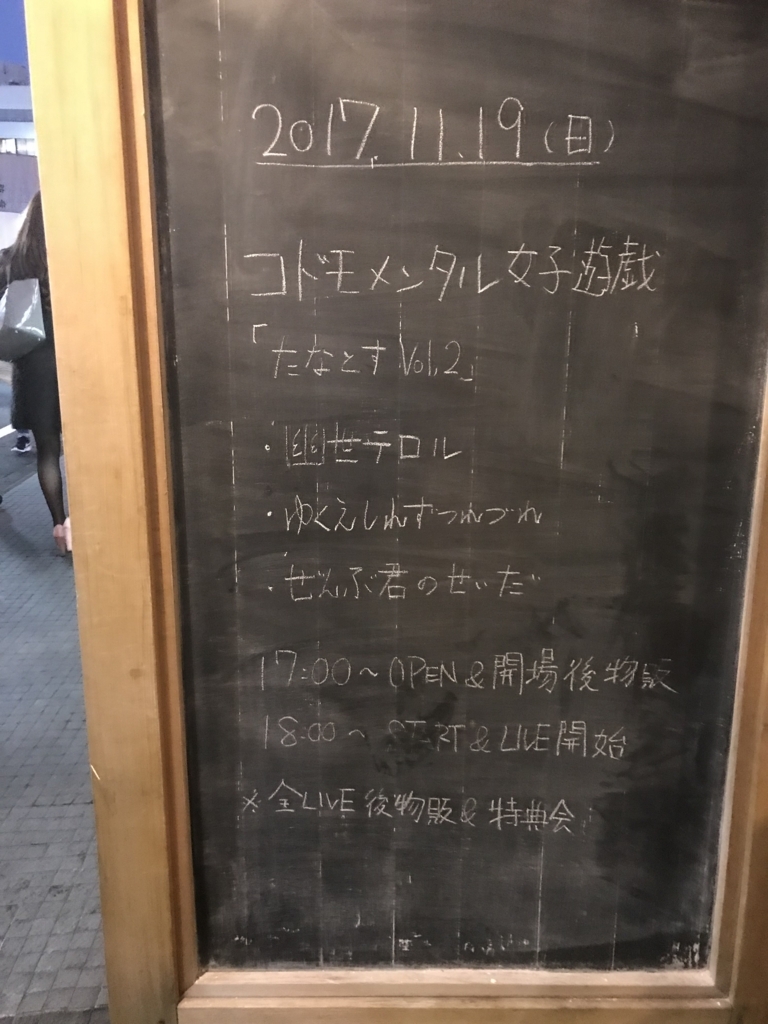 2017.11.19(日)
コドモメンタル女子遊戯
「たなとすVol.2」
・幽世テロル
・ゆくえしれずつれづれ
・ぜんぶ君のせいだ
17:00～OPEN&開場後物販
18:00～START&LIVE開始
※全LIVE後物販&特典会